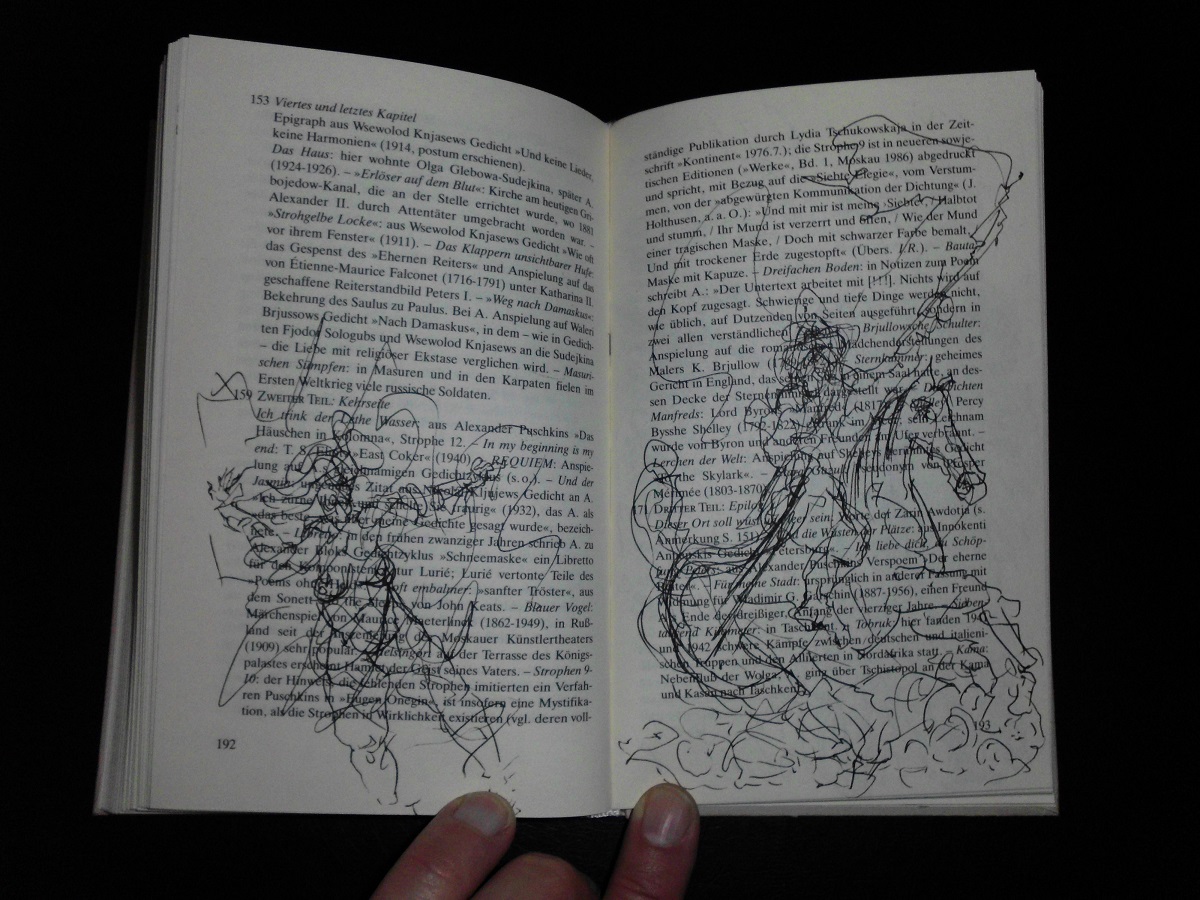 153 Viertes und letztes Kapitel
Epigraph aus Wsewolod Knjasews Gedicht »Und keine Lieder,
keine Harmonien« (1914, postum erschienen).
Das Haus: hier wohnte Olga Glebowa-Sudejkina, später A.
(1924-1926). – »Erlöser auf dem Blut«: Kirche am heutigen Gri-
bojedow-Kanal, die an der Stelle errichtet wurde, wo 1881
Alexander II. durch Attentäter umgebracht worden war. –
»Strohgelbe Locke«: aus Wsewolod Knjasews Gedicht »Wie oft
vor ihrem Fenster« (1911). – Das Klappern unsichtbarer Hufe:
das Gespenst des »Ehernen Reiters« und Anspielung auf das
von Étienne-Maurice Falconet (1716-1791) unter Katharina II.
geschaffene Reiterstandbild Peters I. – »Weg nach Damaskus«:
Bekehrung des Saulus zu Paulus. Bei A. Anspielung auf Waleri
Brjussows Gedicht »Nach Damaskus«, in dem – wie in Gedich-
ten Fjodor Sologubs und Wsewolod Knjasews an die Sudejkina
– die Liebe mit religiöser Ekstase verglichen wird. – Masuri-
schen Sümpfen: in Masuren und in den Karpaten fielen im
Ersten Weltkrieg viele russische Soldaten.
159 ZWEITER TEIL: Kehrseite
Ich trink der Wasser: aus Alexander Puschkins »Das
Häuschen in Kolomna«, Strophe 12. – In my beginning is my
end: T. S. »East Coker« (1940). – REQUIEM: Anspie-
lung auf Gedichtzyklus (s. o.). – Und der
Jasmin: Zitat aus Nikolai Kljujews Gedicht an A.
»Ich zürne und schelte Sie traurig« (1932), das A. als
»das beste, was über meine Gedichte gesagt wurde«, bezeich-
nete. – Libretto: in den frühen zwanziger Jahren schrieb A. zu
Alexander Bloks Gedichtzyklus »Schneemaske« ein Libretto
für den Komponisten Artur Lurié; Lurié vertonte Teile des
»Poems ohne Held«. embalmer: »sanfter Tröster«, aus
dem Sonett von John Keats. – Blauer Vogel:
Märchenspiel von Maurice Maeterlinck (1862-1949), in Ruß-
land seit der Inszenierung des Moskauer Künstlertheaters
(1909) sehr populär. – Helsingör: auf der Terrasse des Königs-
palastes erscheint Hamlet der Geist seines Vaters. – Strophen 9-
10: der Hinweis, die fehlenden Strophen imitierten ein Verfah-
ren Puschkins in »Eugen Onegin«, ist insofern eine Mystifika-
tion, als die Strophen in Wirklichkeit existieren (vgl. deren voll-
192
ständige Publikation durch Lydia Tschukowskaja in der Zeit-
schrift »Kontinent« 1976.7.); die Strophe 9 ist in neueren sowje-
tischen Editionen (»Werke«, Bd. 1, Moskau 1986) abgedruckt
und spricht, mit Bezug auf die »Siebte Elegie«, vom Verstum-
men, von der »abgewürgten Kommunikation der Dichtung« (J.
Holthusen, a. a. O.): »Und mit mir ist meine ›Siebte‹, / Halbtot
und stumm, / Ihr Mund ist verzerrt und offen, / Wie der Mund
einer tragischen Maske, / Doch mit schwarzer Farbe bemalt,
Und mit trockener Erde zugestopft« (Übers. I.R.). – Bauta:
Maske mit Kapuze. – Dreifachen Boden: in Notizen zum Poem
schreibt A.: »Der Untertext arbeitet mit [!!!]. Nichts wird auf
den Kopf zugesagt. Schwierige und tiefe Dinge werden nicht,
wie üblich, auf Dutzenden von Seiten ausgeführt, sondern in
zwei allen verständlichen Brjullowsche Schulter:
Anspielung auf die Mädchendarstellungen des
Malers K. Brjullow Sternkammer: geheimes
Gericht in England, das in einem Saal tagte, an des-
sen Decke der Sternenhimmel dargestellt war. –
Manfreds: Lord Byrons »Manfred« (1817). Percy
Bysshe Shelley (1792-1822) ertrank im Meer, sein Leichnam
wurde von Byron und anderen Freunden am Ufer verbrannt. –
Lerchen der Welt: Anspielung auf Shelleys berühmtes Gedicht
the Skylark«. – Clara Gazul: Pseudonym von Prosper
Mérimée (1803-1870).
171 DRITTER TEIL: Epilog
Dieser Ort soll wüst und leer sein: Worte der Zarin Awdotja (s.
Anmerkung S. 151). und die Wüsten der Plätze: aus Innokenti
Annenskis Gedicht »Petersburg«. – Ich liebe dich, du Schöp-
fung Peters: aus Alexander Puschkins Verspoem »Der eherne
Reiter«. – Für meine Stadt: ursprünglich in anderer Fassung mit
Widmung für Wladimir G. Garschin (1887-1956), einen Freund
A.s Ende der dreißiger, Anfang der vierziger Jahre. – Sieben-
tausend Kilometer: in Taschkent. – Tobruk: hier fanden 1941
und 1942 schwere Kämpfe zwischen deutschen und italieni-
schen Truppen und den Alliierten in Nordafrika statt. – Kama:
Nebenfluß der Wolga, ging über Tschistopol an der Kama
und Kasan nach Taschkent.
193